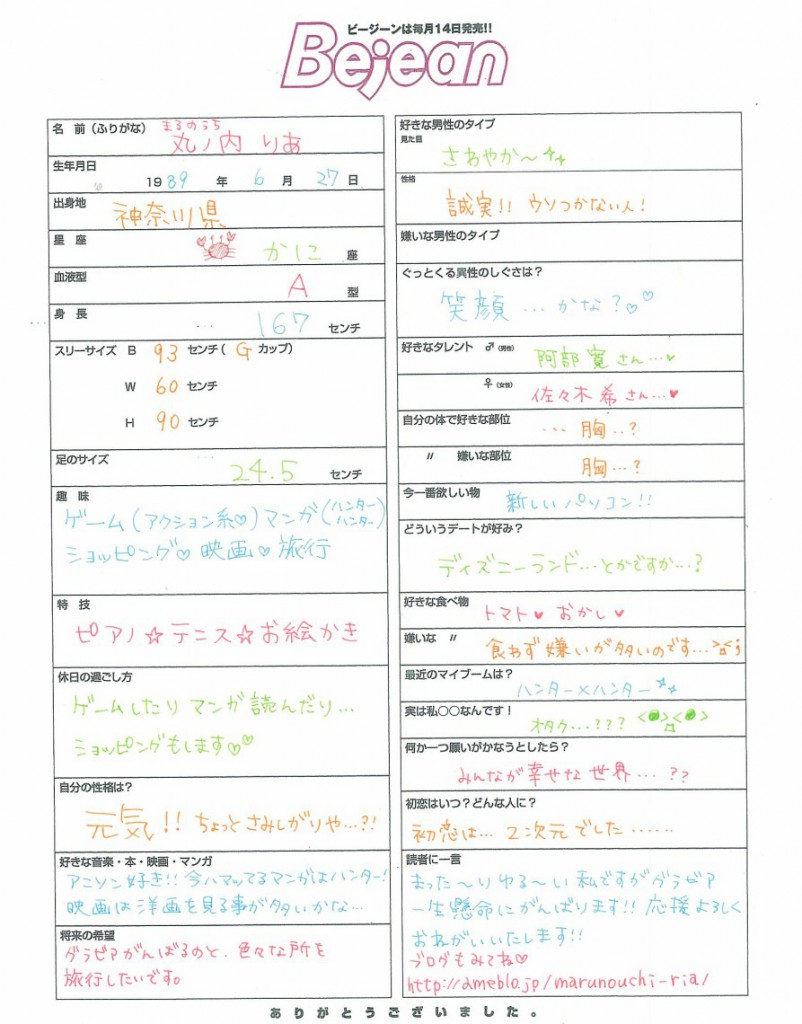 ビージーンは毎月14日発売!!
Bejean
名 前（ふりがな） まるのうち
丸ノ内 りあ
生年月日
1989 年 6 月 27 日
出身地
神奈川県
星 座
かに 座
血液型
A 型
身 長
167 センチ
スリーサイズ B 93 センチ( G カップ)
W 60 センチ
H 90 センチ
足のサイズ
24.5 センチ
趣 味
ゲーム(アクション系♡)マンガ(ハンターハンター)
ショッピング♡ 映画♡旅行
特 技
ピアノ☆テニス☆お絵かき
休日の過ごし方
ゲームしたり マンガ読んだり…
ショッピングもします♡♡
自分の性格は?
元気!! ちょっとさみしがりや…?!
好きな音楽・本・映画・マンガ
アニソン好き!! 今ハマってるマンガはハンター!
映画は洋画を見る事が多いかな…
将来の希望
グラビアがんばるのと、色々な所を
旅行したいです。
好きな男性のタイプ
見た目
さわやか〜
性格
誠実!! ウソつかない人!
嫌いな男性のタイプ
ぐっとくる異性のしぐさは?
笑顔…かな?♡♡
好きなタレント ♂(男性) 阿部寛さん…♥
♀(女性) 佐々木希さん…♥
自分の体で好きな部位 … 胸..?
〃 嫌いな部位 胸…?
今一番欲しい物 新しいパソコン!!
どういうデートが好み?
ディズニーランド…とかですか…?
好きな食べ物
トマト♥ おかし♥
嫌いな 〃 食わず嫌いが多いのです…
最近のマイブームは?
ハンター×ハンター
実は私○○なんです!
オタク…???
何か一つ願いがかなうとしたら?
みんなが幸せな世界…. ??
初恋はいつ?どんな人に?
初恋は… 2次元でした……
読者に一言
まった〜りゆる〜い私ですがグラビア
一生懸命にがんばります!! 応援よろしく
おねがいいたします!!
ブログもみてね♡
http://ameblo.jp/marunouchi-ria/
ありがとうございました。